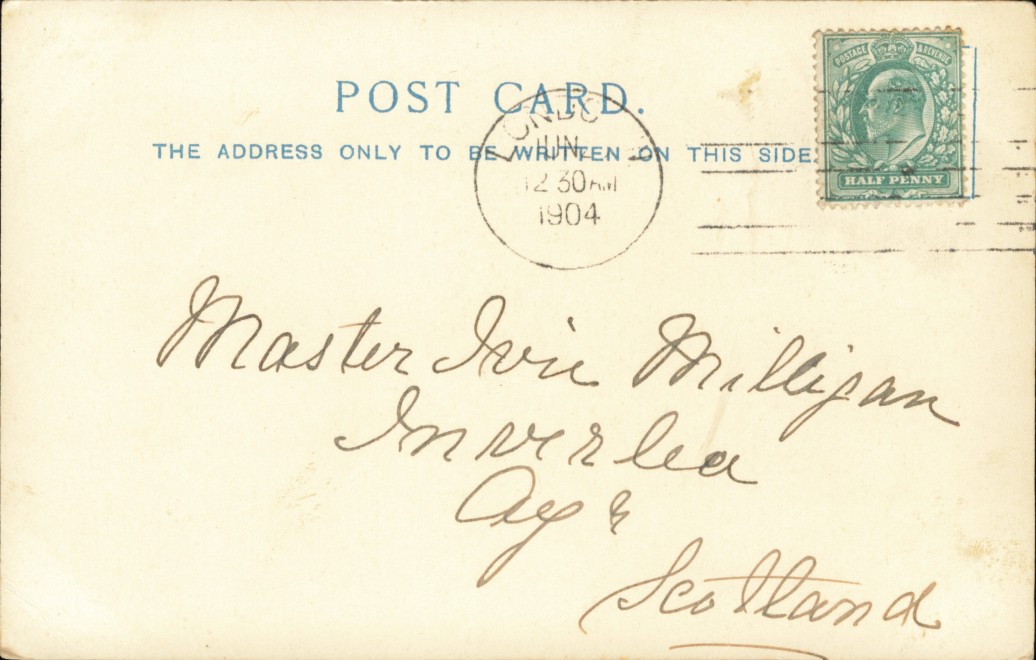 POST CARD.
THE ADDRESS ONLY TO BE WRITTEN ON THIS SIDE
LONDON
JUN
12 30 AM
1904
POSTAGE & REVENUE
HALF PENNY
Master Ivie Milligan
Inverlea
Ayr
Scotland